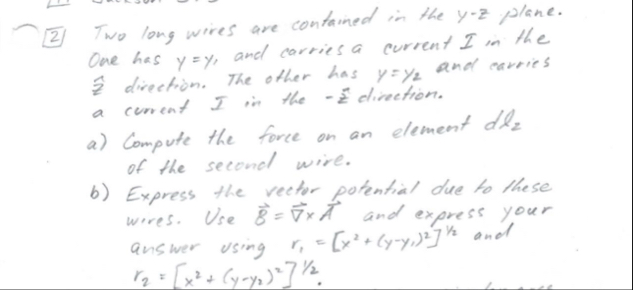 2 Two long wires are contained in the y-z plane.
One has y=y₁ and carries a current I in the
ẑ direction. The other has y=y₂ and carries
a current I in the -ẑ direction.
a) Compute the force on an element dl₂
of the second wire.
b) Express the vector potential due to these
wires. Use B⃗ = ∇⃗×A⃗ and express your
answer using r₁ = [x²+(y-y₁)²]^½ and
r₂ = [x²+(y-y₂)²]^½.